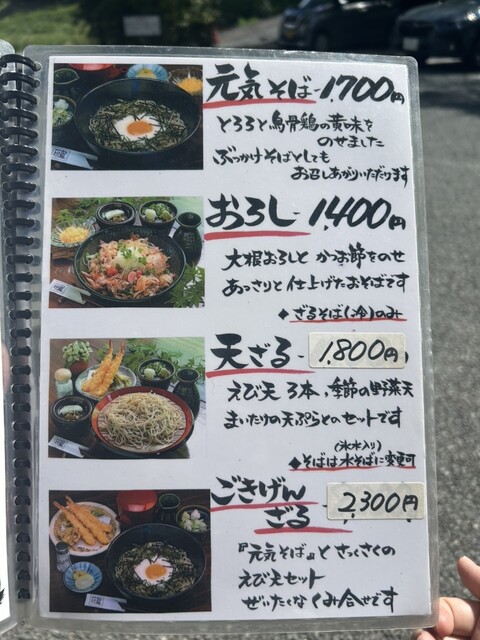 元気そば-1,700円
とろろと烏骨鶏の黄味を
のせました
ぶっかけそばとしても
お召しあがりいただけます
おろし-1,400円
大根おろしと かつお節をのせ
あっさりと仕上げたおそばです
◆ざるそば(冷)のみ
天ざる-1,800円
えび天 3本、季節の野菜天
まいたけの天ぷらとのセットです
(氷水入り)
◆そばは水そばに変更可
ごきげん
ざる-2,300円
『元気そば』と さくさくの
えび天セット
ぜいたくなくみ合せです